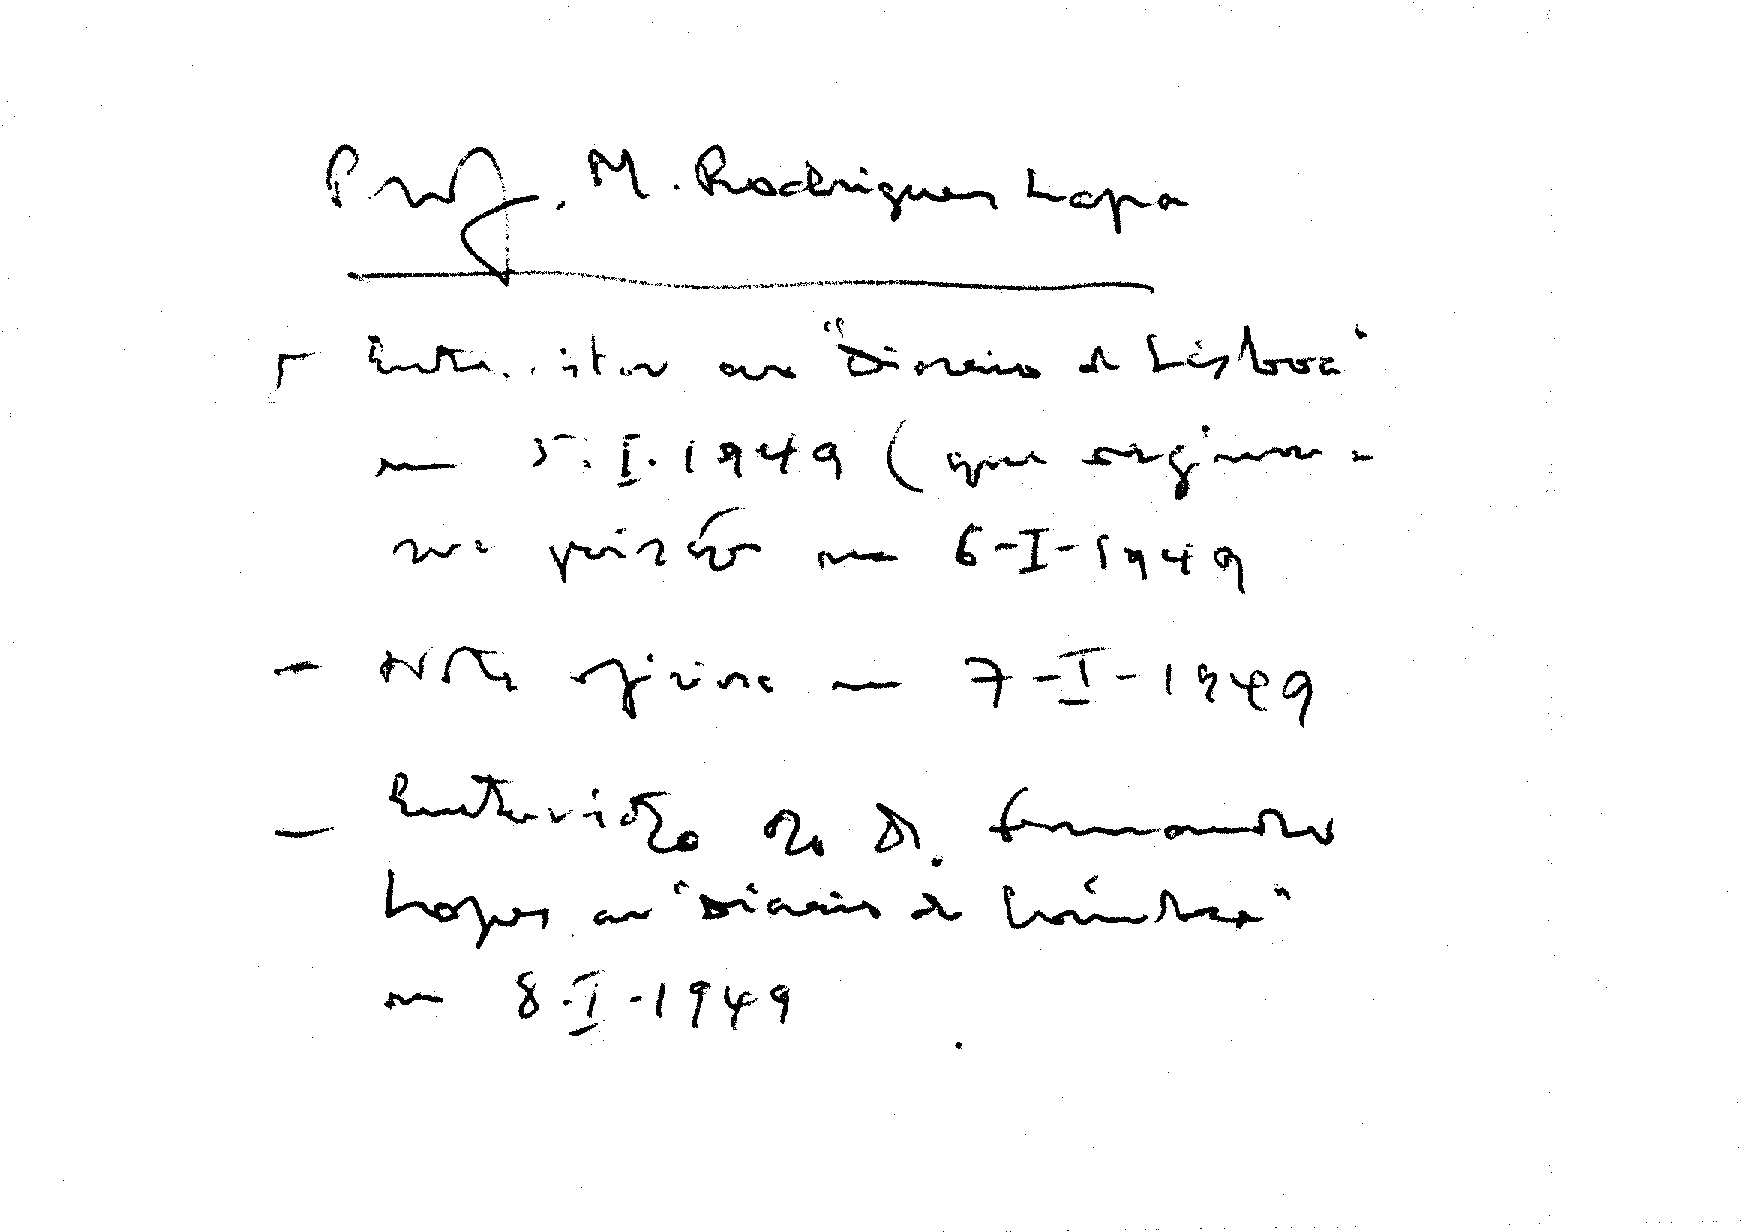 Prof. M. Rodrigues Lapa
- Entrevista ao "Diário de Lisboa"
em 5.I.1949 (que originou a
sua prisão em 6-I-1949
- Nota oficiosa em 7-I-1949
- Entrevista do Dr. Fernando
Lopes ao "Diário de Coimbra"
em 8-I-1949